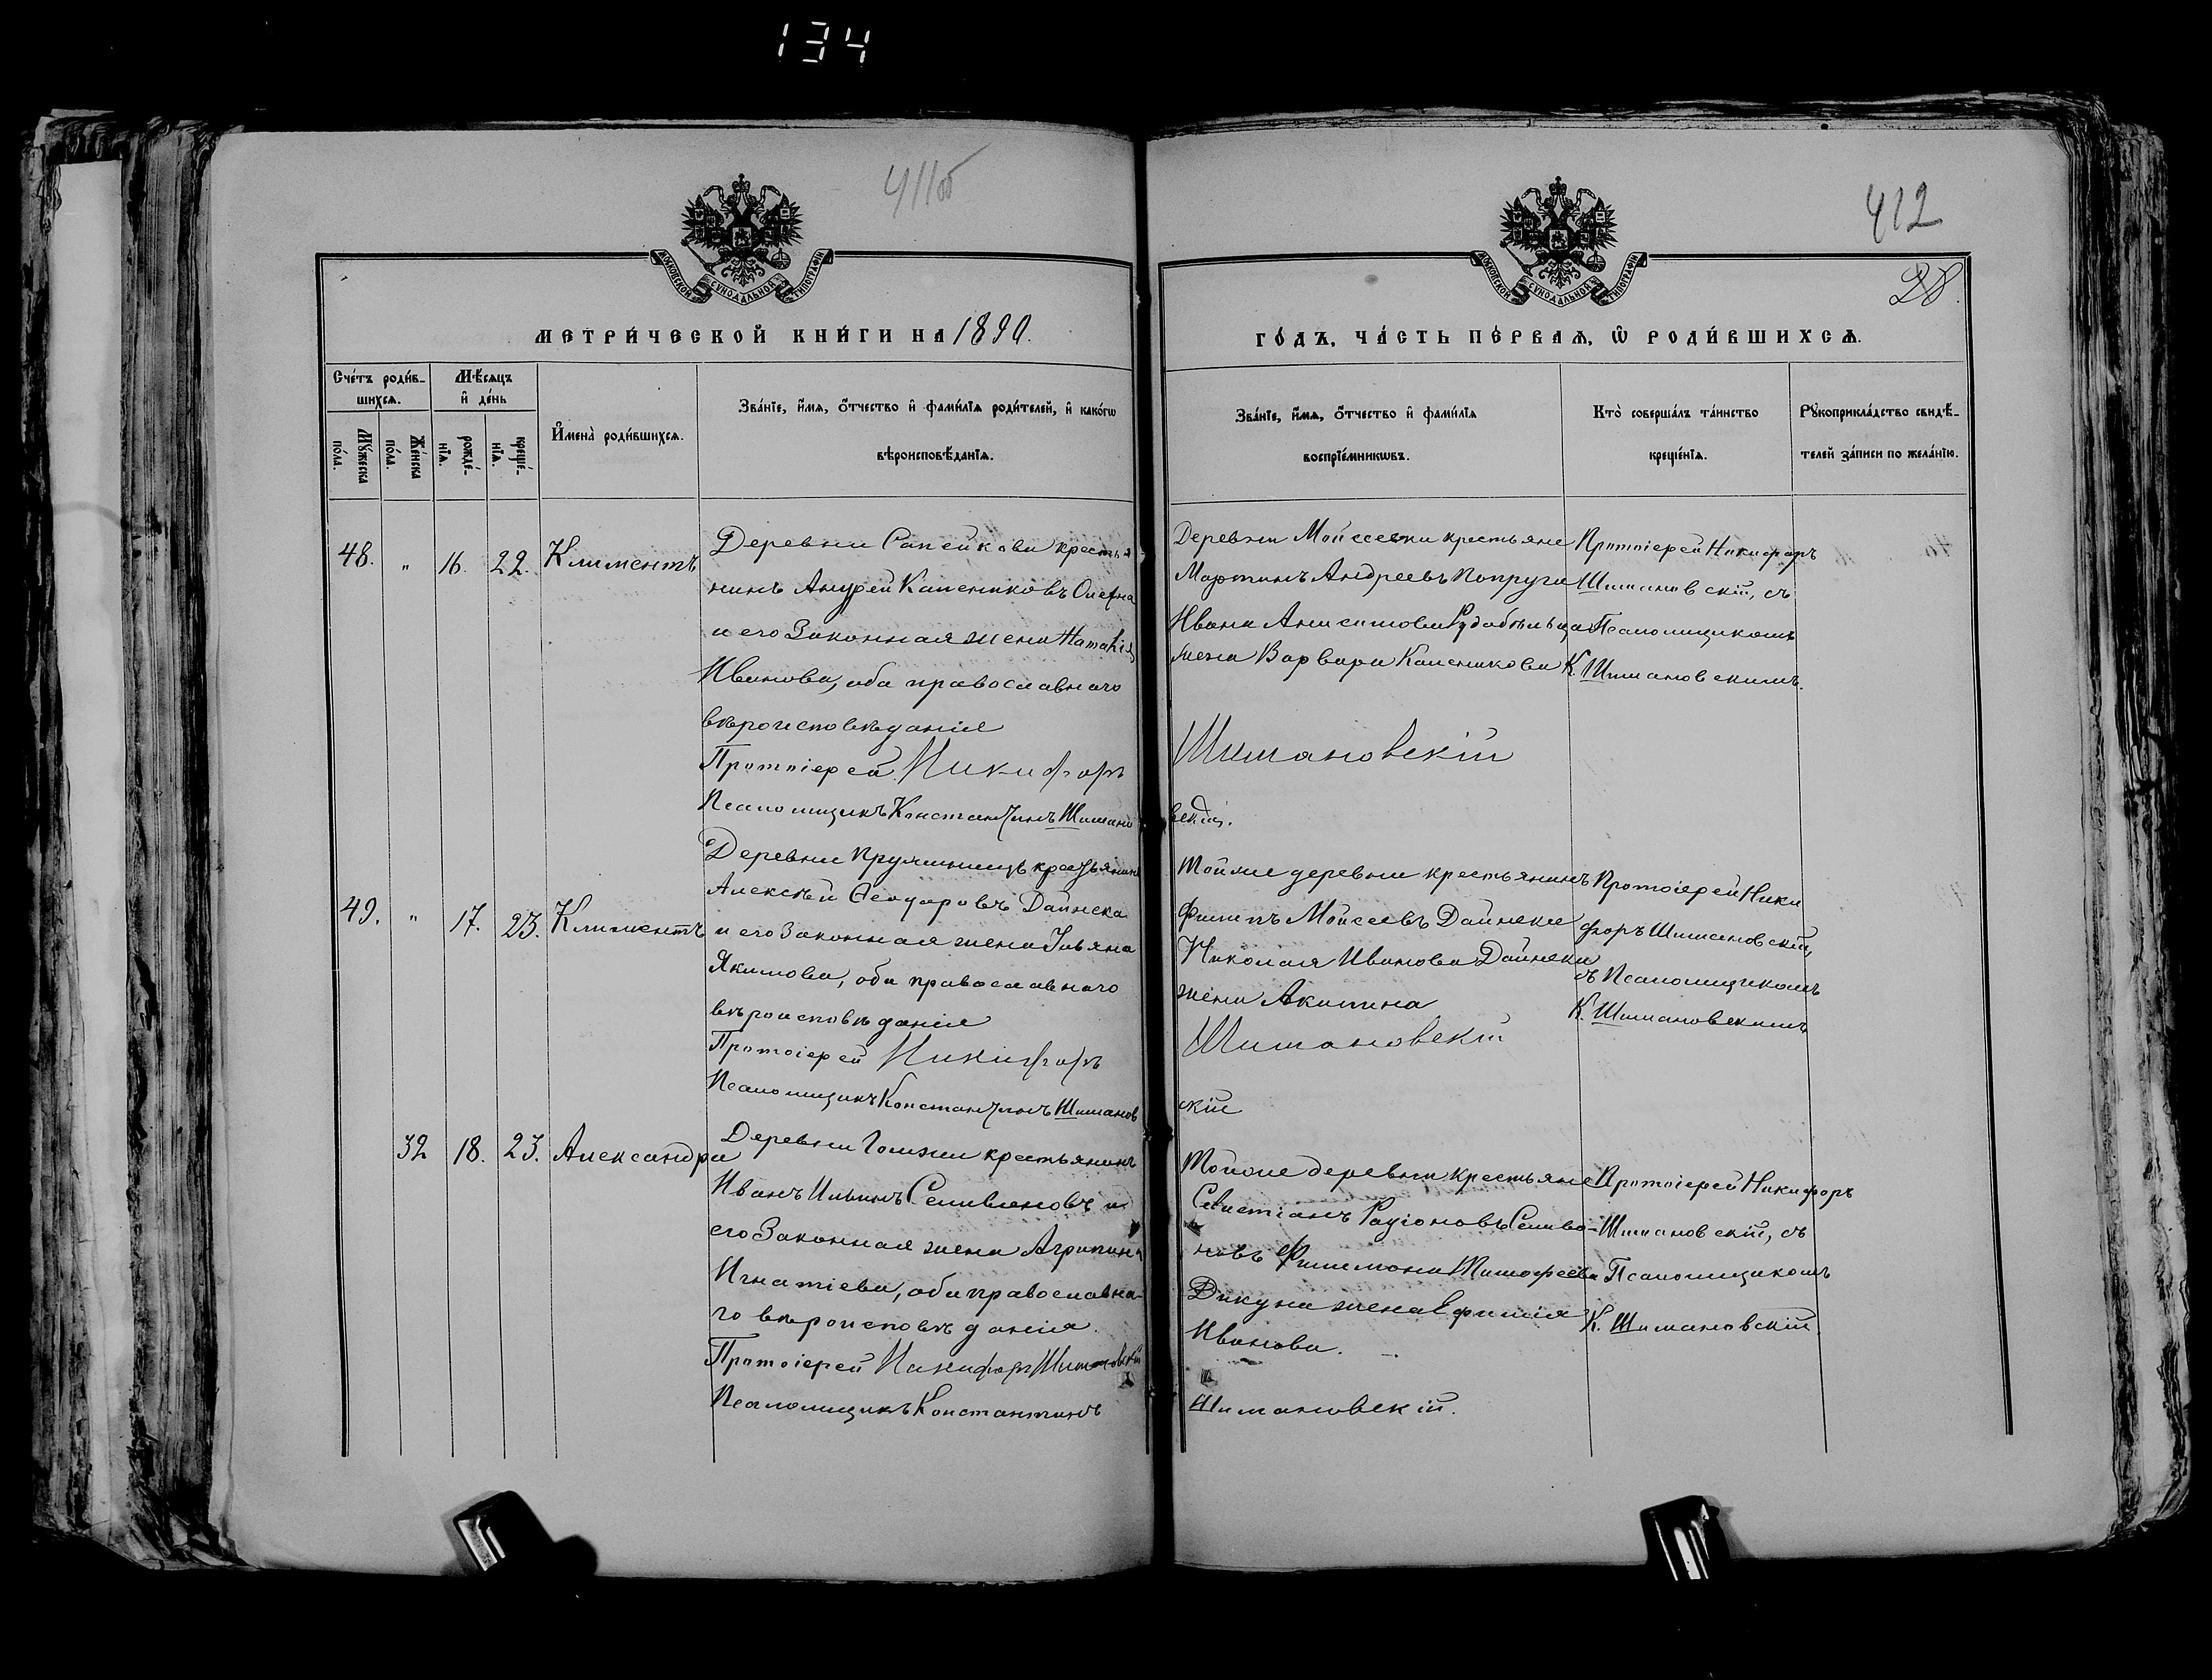 134
411об
412
28.
МОСКОВСКОЙ СѴНОДАЛЬНОЙ ТИПОГРАФІИ
МОСКОВСКОЙ СѴНОДАЛЬНОЙ ТИПОГРАФІИ
МЕТРИ́ЧЕСКОЙ КНИ́ГИ НА 1890.
ГО́ДЪ, ЧА́СТЬ ПЕ́РВАѦ, Ѽ РОДИ́ВШИХСѦ.
Сче́тъ роди́в-
шихсѧ.
Мꙋ́жеска
по́ла.
Же́нска
по́ла.
Мѣ́сѧцъ
и҆ де́нь
рожде́-
нїѧ.
креще́-
нїѧ.
И҆мена̀ роди́вшихсѧ.
Зва́нїе, и҆́мѧ, ѻ҆́тчество и҆ фами́лїѧ роди́телей, и҆ како́гѡ
вѣроисповѣ́данїѧ.
Зва́нїе, и҆́мѧ, ѻ҆́тчество и҆ фами́лїѧ
воспрїе́мникѡвъ.
Кто̀ соверша́лъ та́инство
креще́нїѧ.
Рꙋкоприкла́дство свидѣ́-
телей за́писи по жела́нїю.
48. " 16. 22. Климентъ
Деревни Сапейкова крестья
нинъ Андрей Капениковъ
и его Законная жена Наталія
Иванова, оба православнаго
вѣроисповѣданія
Протоіерей Никифоръ
Псаломщикъ Константинъ Шимано
Деревни Моисеевки крестьяне
Мартинъ Андреевъ Попруга
Ивана Анисимова Рудобѣльца
жена Варвара Капеникова
Шимановскій
вскій.
Протоіерей Никифоръ
Шимановскій, съ
Псаломщикомъ
К. Шимановскимъ.
49. " 17. 23. Климентъ
Деревни крестьянинъ
Алексѣй Ѳеодоровъ Дайнека
и его законная жена Ульяна
Якимова, оба православнаго
вѣроисповѣданія
Протоіерей Никифоръ
Псаломщикъ Константинъ Шиманов
Той же деревни крестьянинъ
Филипъ Моисеевъ Дайнека
Николая Иванова Дайнеки
жена Акилина
Шимановскій
скій
Протоіерей Ники
форъ Шимановскій,
съ Псаломщикомъ
К. Шимановскимъ
32 18. 23. Александра
Деревни Гомзы крестьянинъ
Иванъ Ильинъ Селивановъ и
его Законная жена Агрипина
Игнатіева, оба православна-
го вѣроисповѣданія.
Протоіерей Никифоръ Шимановскій
Псаломщикъ Константинъ
Той же деревни крестьяне
Севистіанъ Радіоновъ Селива-
новъ Филимона Тимофеева
Дикуна жена Ефимія
Иванова.
Шимановскій.
Протоіерей Никифоръ
Шимановскій, съ
Псаломщикомъ
К. Шимановскій